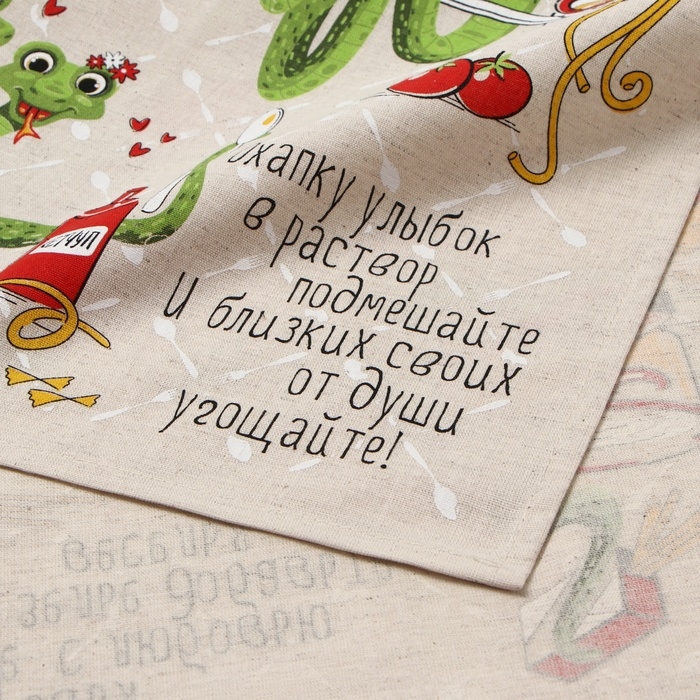 охапку улыбок
в раствор
подмешайте
И близких своих
от души
угощайте!
с любовью